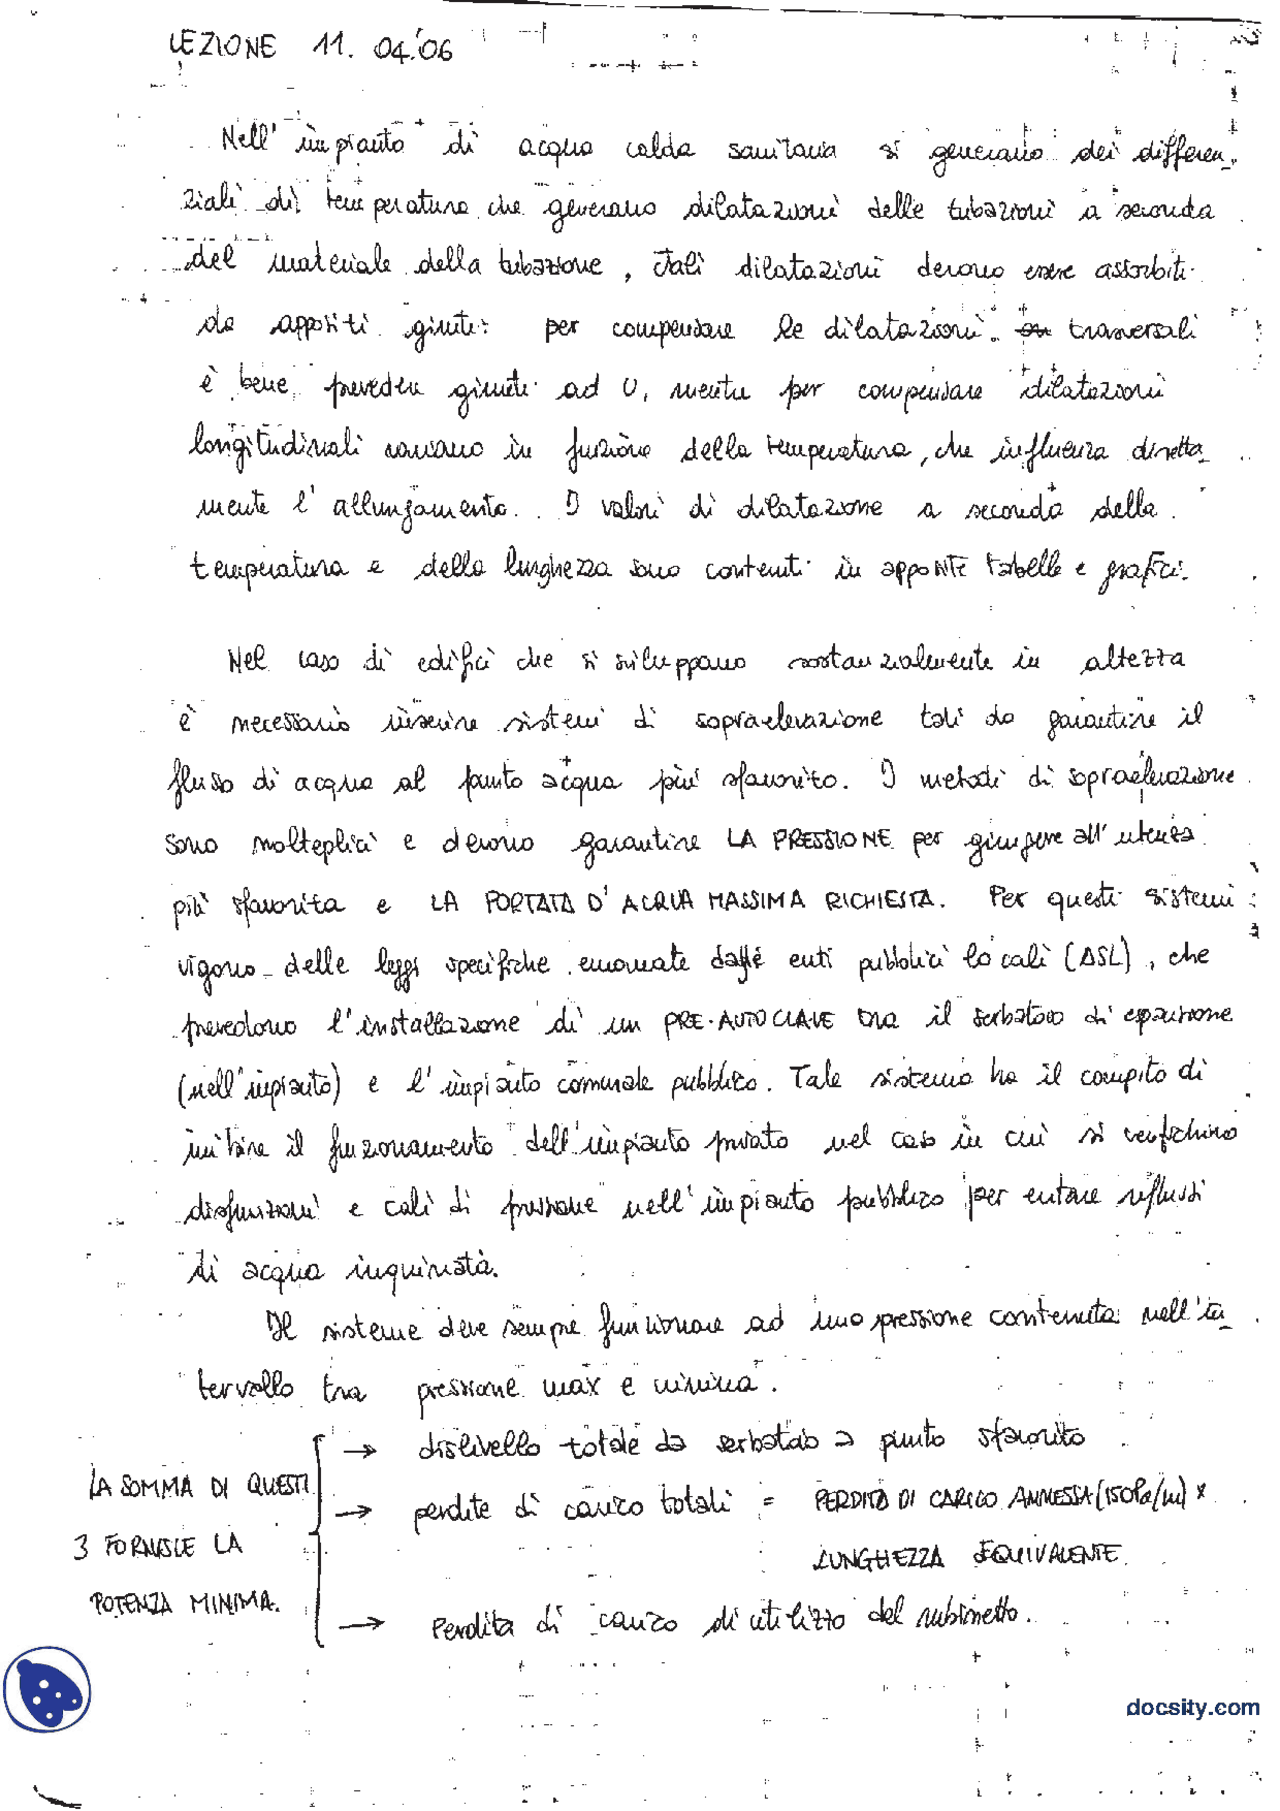 LEZIONE 11.04.'06
Nell' impianto di acqua calda sanitaria si generano dei differen_
ziali di temperatura che generano dilatazioni delle tubazioni a seconda
del materiale della tubazione, Tali dilatazioni devono essere assorbiti
da appositi giunti: per compensare le dilatazioni trasversali
è bene prevedere giunti ad U, mentre per compensare dilatazioni
longitudinali variano in funzione della temperatura, che influenza diretta_
mente l' allungamento. I valori di dilatazione a seconda della
temperatura e della lunghezza sono contenuti in appositi tabelle e grafici.
Nel caso di edifici che si sviluppano sostanzialmente in altezza
è necessario inserire sistemi di sopraelevazione tali da garantire il
flusso di acqua al punto acqua più sfavorito. I metodi di sopraelevazione
sono molteplici e devono garantire LA PRESSIONE per giungere all' utenza
più sfavorita e LA PORTATA D' ACQUA MASSIMA RICHIESTA. Per questi sistemi
vigono delle leggi specifiche emanate enti pubblici locali (ASL), che
prevedono l'installazione di un PRE-AUTOCLAVE tra il serbatoio di espansione
(nell'impianto) e l'impianto comunale pubblico. Tale sistema ha il compito di
il funzionamento dell'impianto privato nel caso in cui si verifichino
disfunzioni e cali di pressione nell'impianto pubblico per evitare reflussi
di acqua inquinata.
Il sistema deve sempre funzionare ad una pressione contenuta nell'in_
tervallo tra pressione max e minima.
→ dislivello totale da serbatoio a punto sfavorito
LA SOMMA DI QUESTI
→ perdite di carico totali = PERDITA DI CARICO ANNESSA (150Pa/m) ×
3 FORNISCE LA
LUNGHEZZA EQUIVALENTE
POTENZA MINIMA.
→ Perdita di carico di utilizzo del rubinetto.
docsity.com